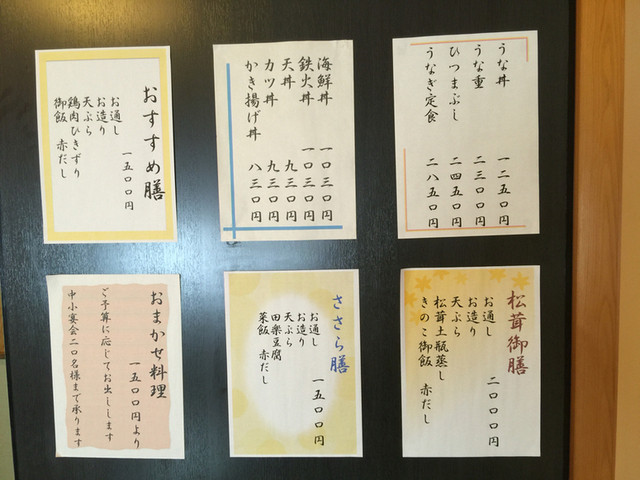 うな丼 一二五〇円
うな重 二三〇〇円
ひつまぶし 二四五〇円
うなぎ定食 二八五〇円
海鮮丼 一〇三〇円
鉄火丼 一〇三〇円
天丼 九三〇円
カツ丼 九三〇円
かき揚げ丼 八三〇円
おすすめ膳
一五〇〇円
お通し
お造り
天ぷら
鶏肉ひきずり
御飯 赤だし
松茸御膳
二〇〇〇円
お通し
お造り
天ぷら
松茸土瓶蒸し
きのこ御飯 赤だし
ささら膳
一五〇〇円
お通し
お造り
天ぷら
田楽豆腐
菜飯 赤だし
おまかせ料理
一五〇〇円より
ご予算に応じてお出しします
中小宴会二〇名様まで承ります